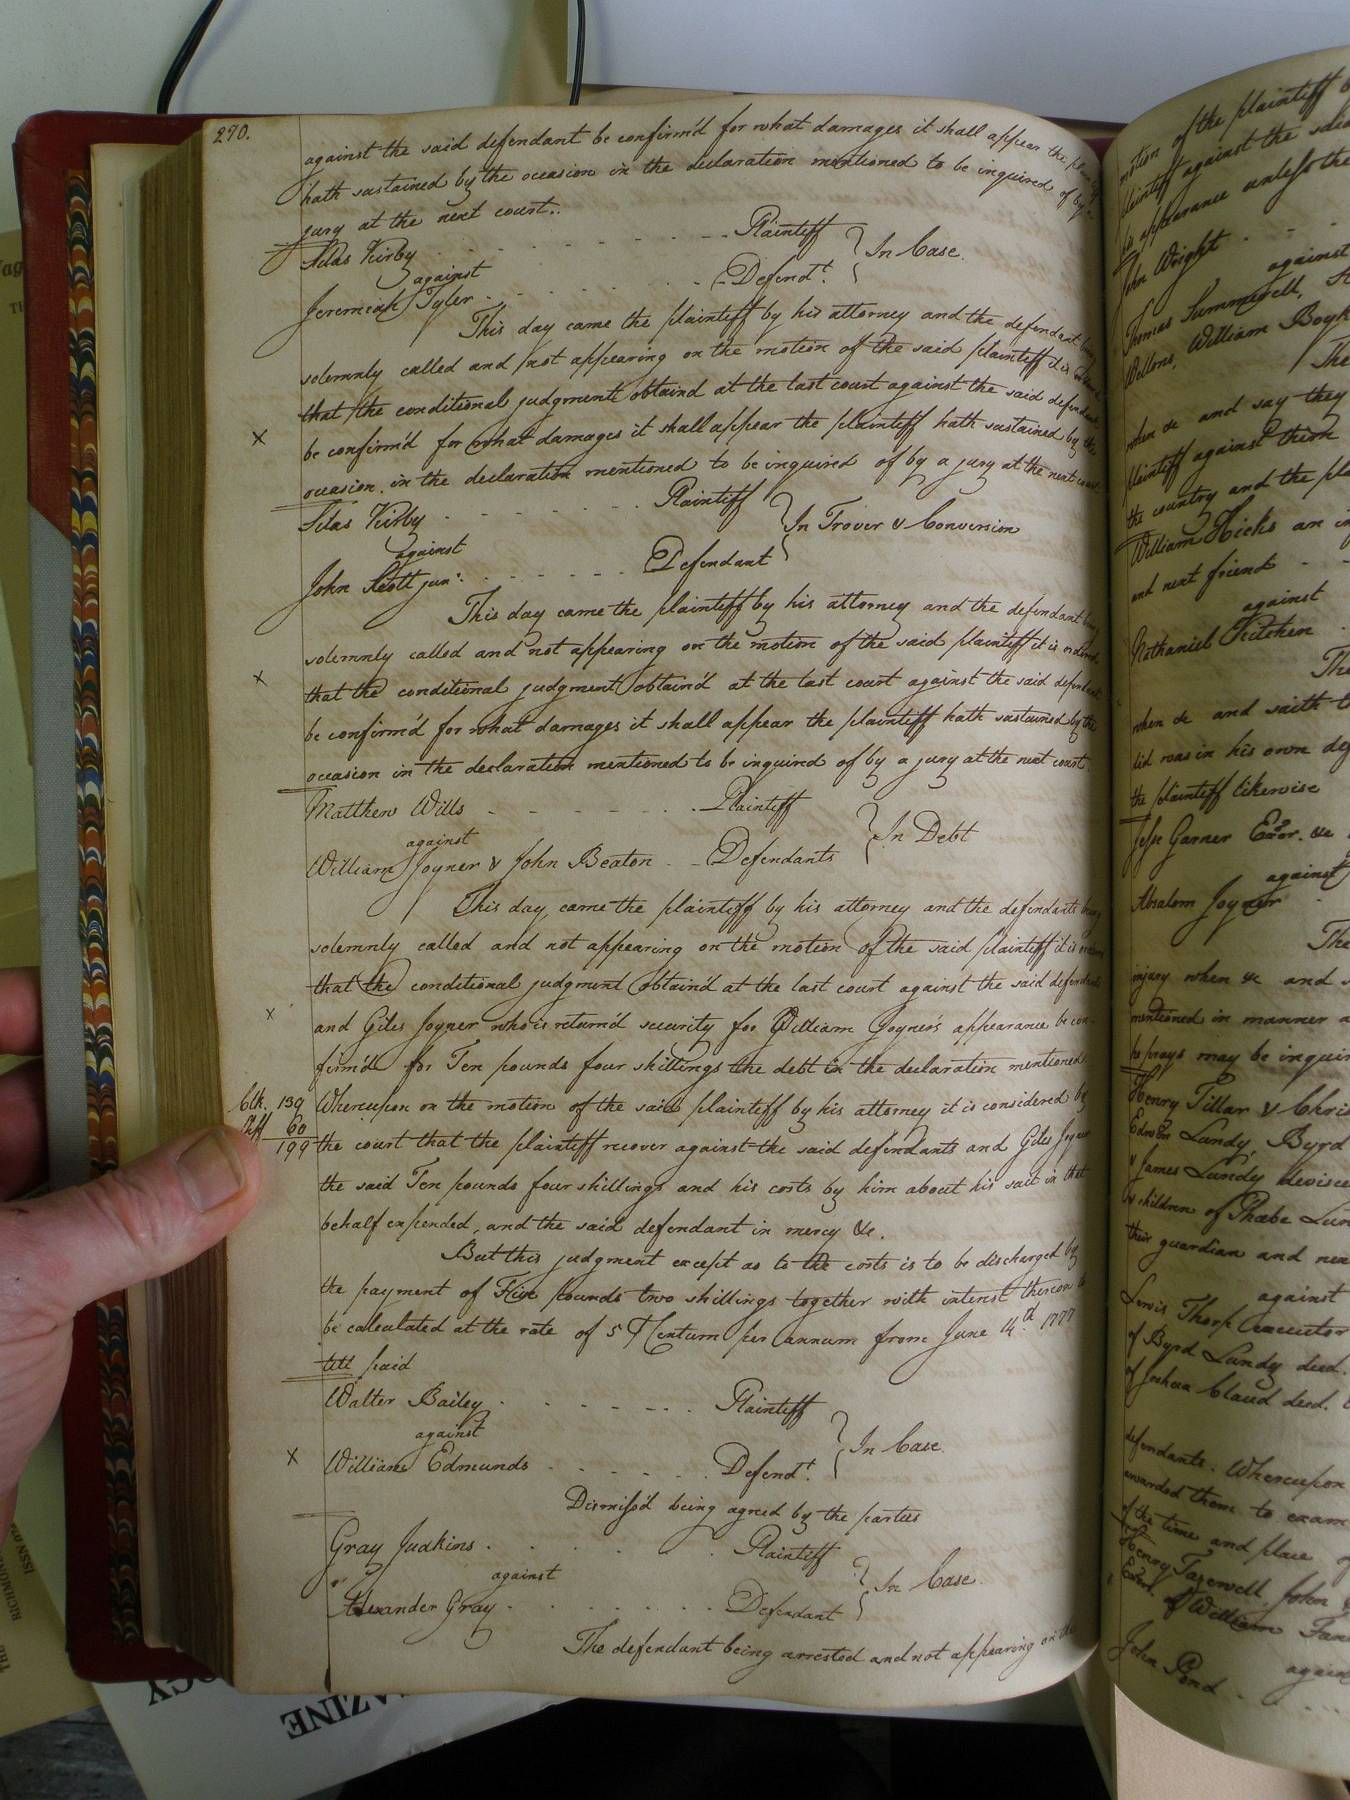 270.
against the said defendant be confirm'd for what damages it shall appear the
hath sustained by the occasion in the declaration mentioned to be inquired of by a
jury at the next court..
Silas Kirby - - - - Plaintiff } In Case.
against
Jeremiah Tyler - - - - Defend.t
This day came the plaintiff by his attorney and the defendant being
solemnly called and not appearing on the motion of the said plaintiff it is
that the conditional judgment obtain'd at the last court against the said defendant
X
be confirm'd for what damages it shall appear the plaintiff hath sustained by the
occasion in the declaration mentioned to be inquired of by a jury at the next court
Silas Kirby - - - - Plaintiff } In Trover & Conversion
against
John Scott jun.r - - - - Defendant
This day came the plaintiff by his attorney and the defendant being
solemnly called and not appearing on the motion of the said plaintiff it is ordered
X
that the conditional judgment obtain'd at the last court against the said defendant
be confirm'd for what damages it shall appear the plaintiff hath sustained by the
occasion in the declaration mentioned to be inquired of by a jury at the next court
Matthew Wills - - - - Plaintiff } In Debt
against
William Joyner & John Beaton - - Defendants
This day came the plaintiff by his attorney and the defendants being
solemnly called and not appearing on the motion of the said plaintiff it is
that the conditional judgment obtain'd at the last court against the said defendants
X
and Giles Joyner who is return'd security for William Joyner's appearance be con-
firm'd for Ten pounds four shillings the debt in the declaration mentioned
Clk. 139 Whereupon on the motion of the said plaintiff by his attorney it is considered by
60
199 the court that the plaintiff recover against the said defendants and Giles Joyner
the said Ten pounds four shillings and his costs by him about his suit in that
behalf expended, and the said defendant in mercy &c.
But this judgment except as to the costs is to be discharged by
the payment of Five pounds two shillings together with interest thereon to
be calculated at the rate of 5 Centum per annum from June 14th 1777
till paid
Walter Bailey - - - - Plaintiff } In Case.
against
X
William Edmunds - - - - Defend.t
Dismiss'd being agreed by the parties
Gray Judkins - - - - Plaintiff } In Case.
against
Alexander Gray - - - - Defendant
The defendant being arrested and not appearing on the
motion of the plaintiff
plaintiff against the said
his appearance unless the
John Wright - - -
against
Thomas Summerell,
Wellons, William Boyk
The
when &c and say they
plaintiff against them
the country and the pla
William Hicks an in
and next friend - -
against
Nathaniel Kitchen
The
when &c and saith t
did was in his own def
the plaintiff likewise
Jesse Garner Exor. &c
against
Absalom Joyner
The
injury when &c and s
mentioned in manner a
he prays may be inquir
Henry Tillar & Chris
Edwin Lundy, Byrd
& James Lundy devisee
& children of Phœbe Lun
their guardian and nex
against
Lewis Thorp executor
of Byrd Lundy decd.
of Joshua Claud decd.
defendants. Whereupon
awarded them to exam
of the time and place of
Henry Tazewell, John
Exors. of William Fan
again
John Pond
AZINE
OGY
ISSN
RICHMOND